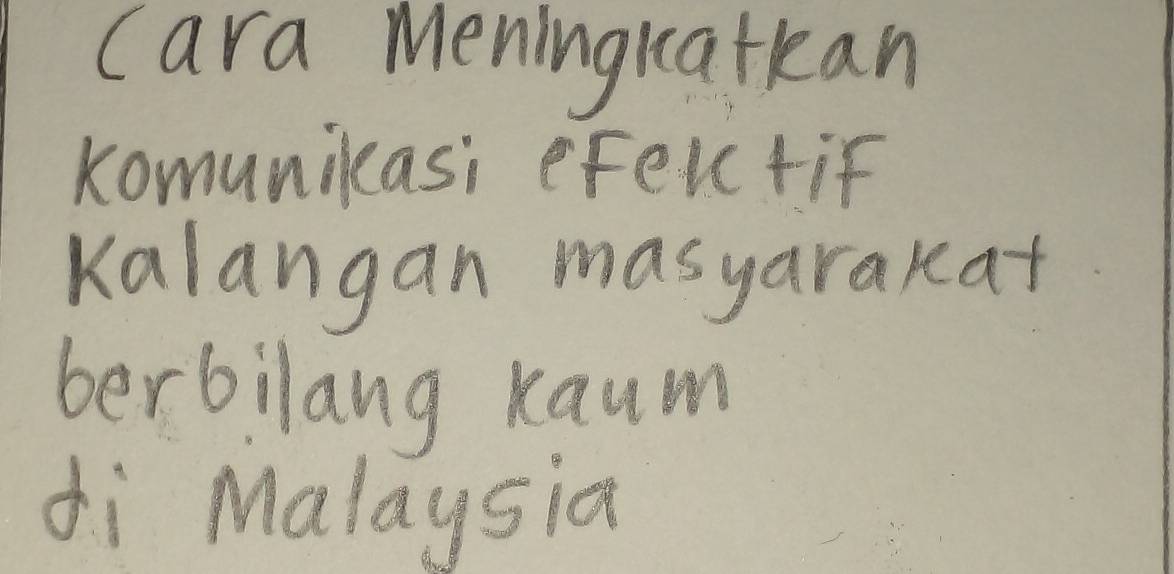 Cara Meningkatkan
Komunikasi eFektiF
Kalangan masyarakat
berbilang kaum
di Malaysia